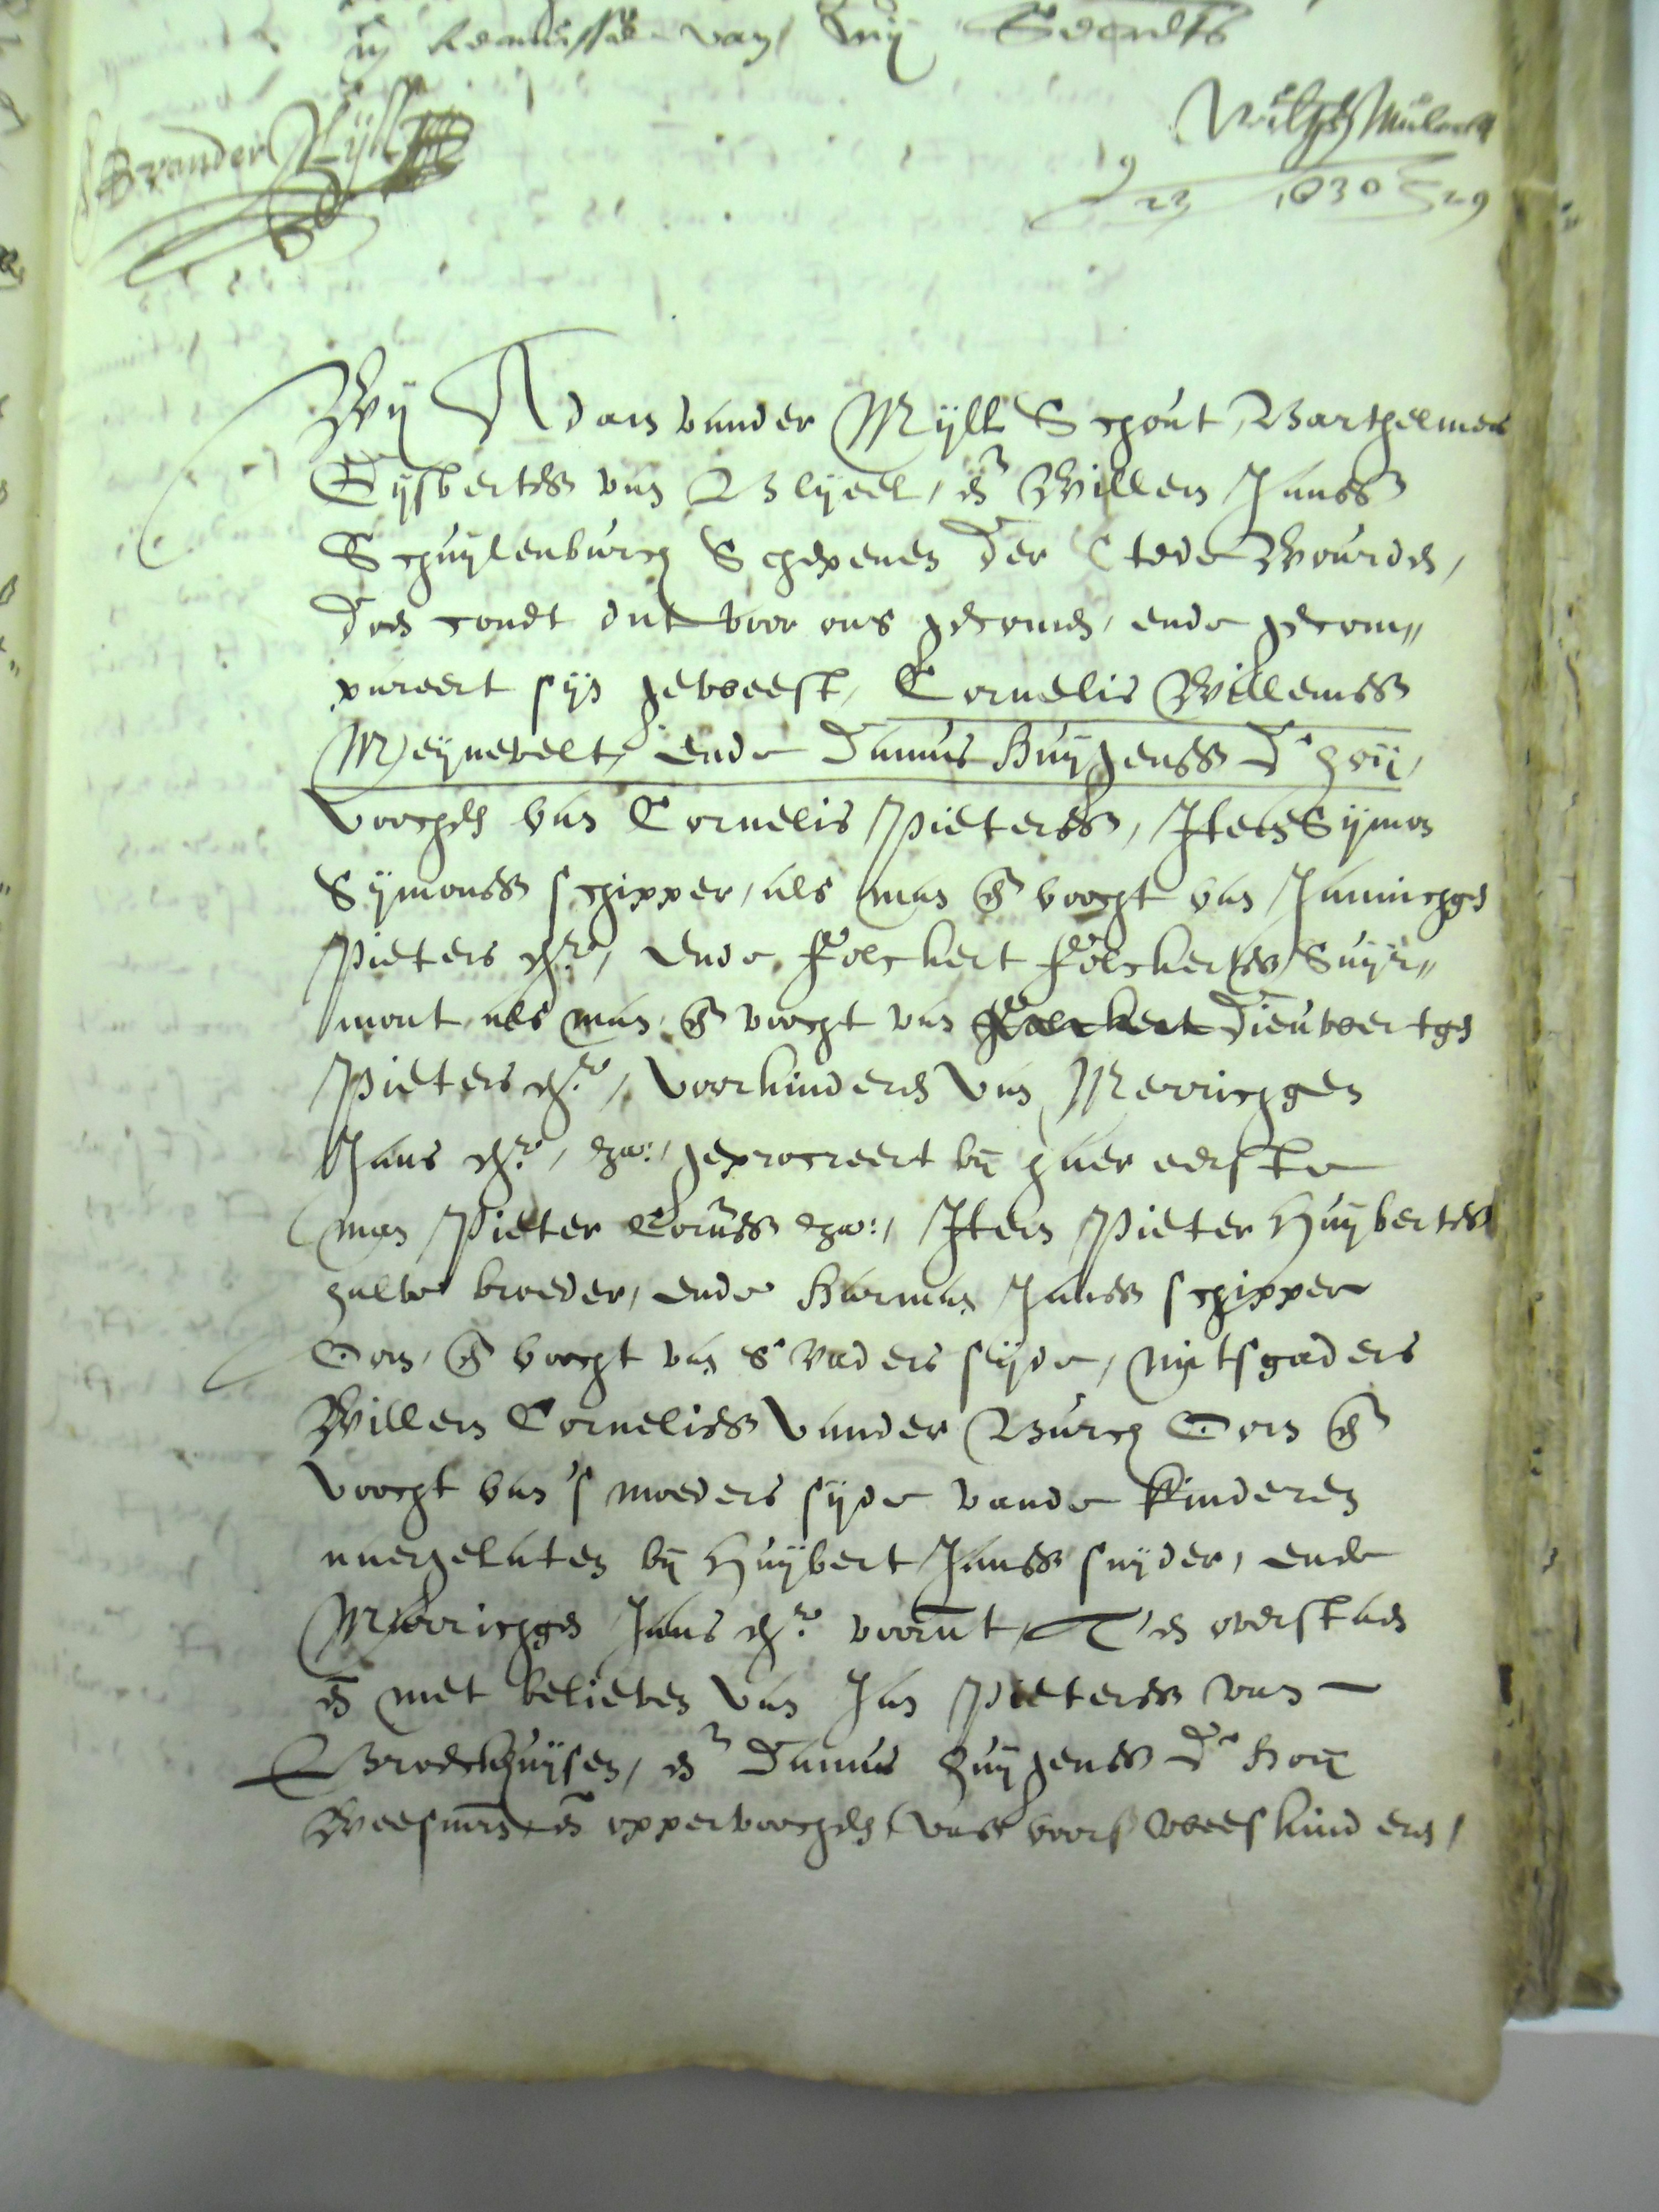 in kennisse van mij Secretaris
B vander Nijll
Wilh Mulock
9
23 1630 29
Wij Adam vander Mijll Schout, Barthelmeus
Gijsbertss van Blijeel, en Willem Janss
Schuijlenburch Schepenen der Stede Woerden,
doen condt dat voor ons gecomen, ende gecom„
pareert sijn geweest, Cornelis Willemss
Meijnevelt, ende Damus Huijgenss d' Hoij,
voochden van Cornelis Pieterss, Item Sijmon
Sijmonss schipper, als man en voocht van Jannichgen
Pieters dr., ende Folckert Folckertss Suijr„
mont, als man en voocht van Folckert Dieuwertgen
Pieters dr., voorkinderen van Merrichgen
Jans dr., za:, geprocreert bij haer eerste
man Pieter Cornss za:, Item Pieter Huijbertss
halve broeder, ende Harman Janss schipper
Oom, en voocht van s' vaders sijde, mitsgaders
Willem Corneliss vander Burch Oom en
voocht van 's moeders sijde vande kinderen
naergelaten bij Huijbert Janss snijder, ende
Marrichgen Jans dr. voornt, T'en overstaen
en met believen van Jan Pieterss van
Broeckhuijsen, en Damus Huijgenss d' Hoij
Weesmrn en oppervoochden vande voors weeskinderen,